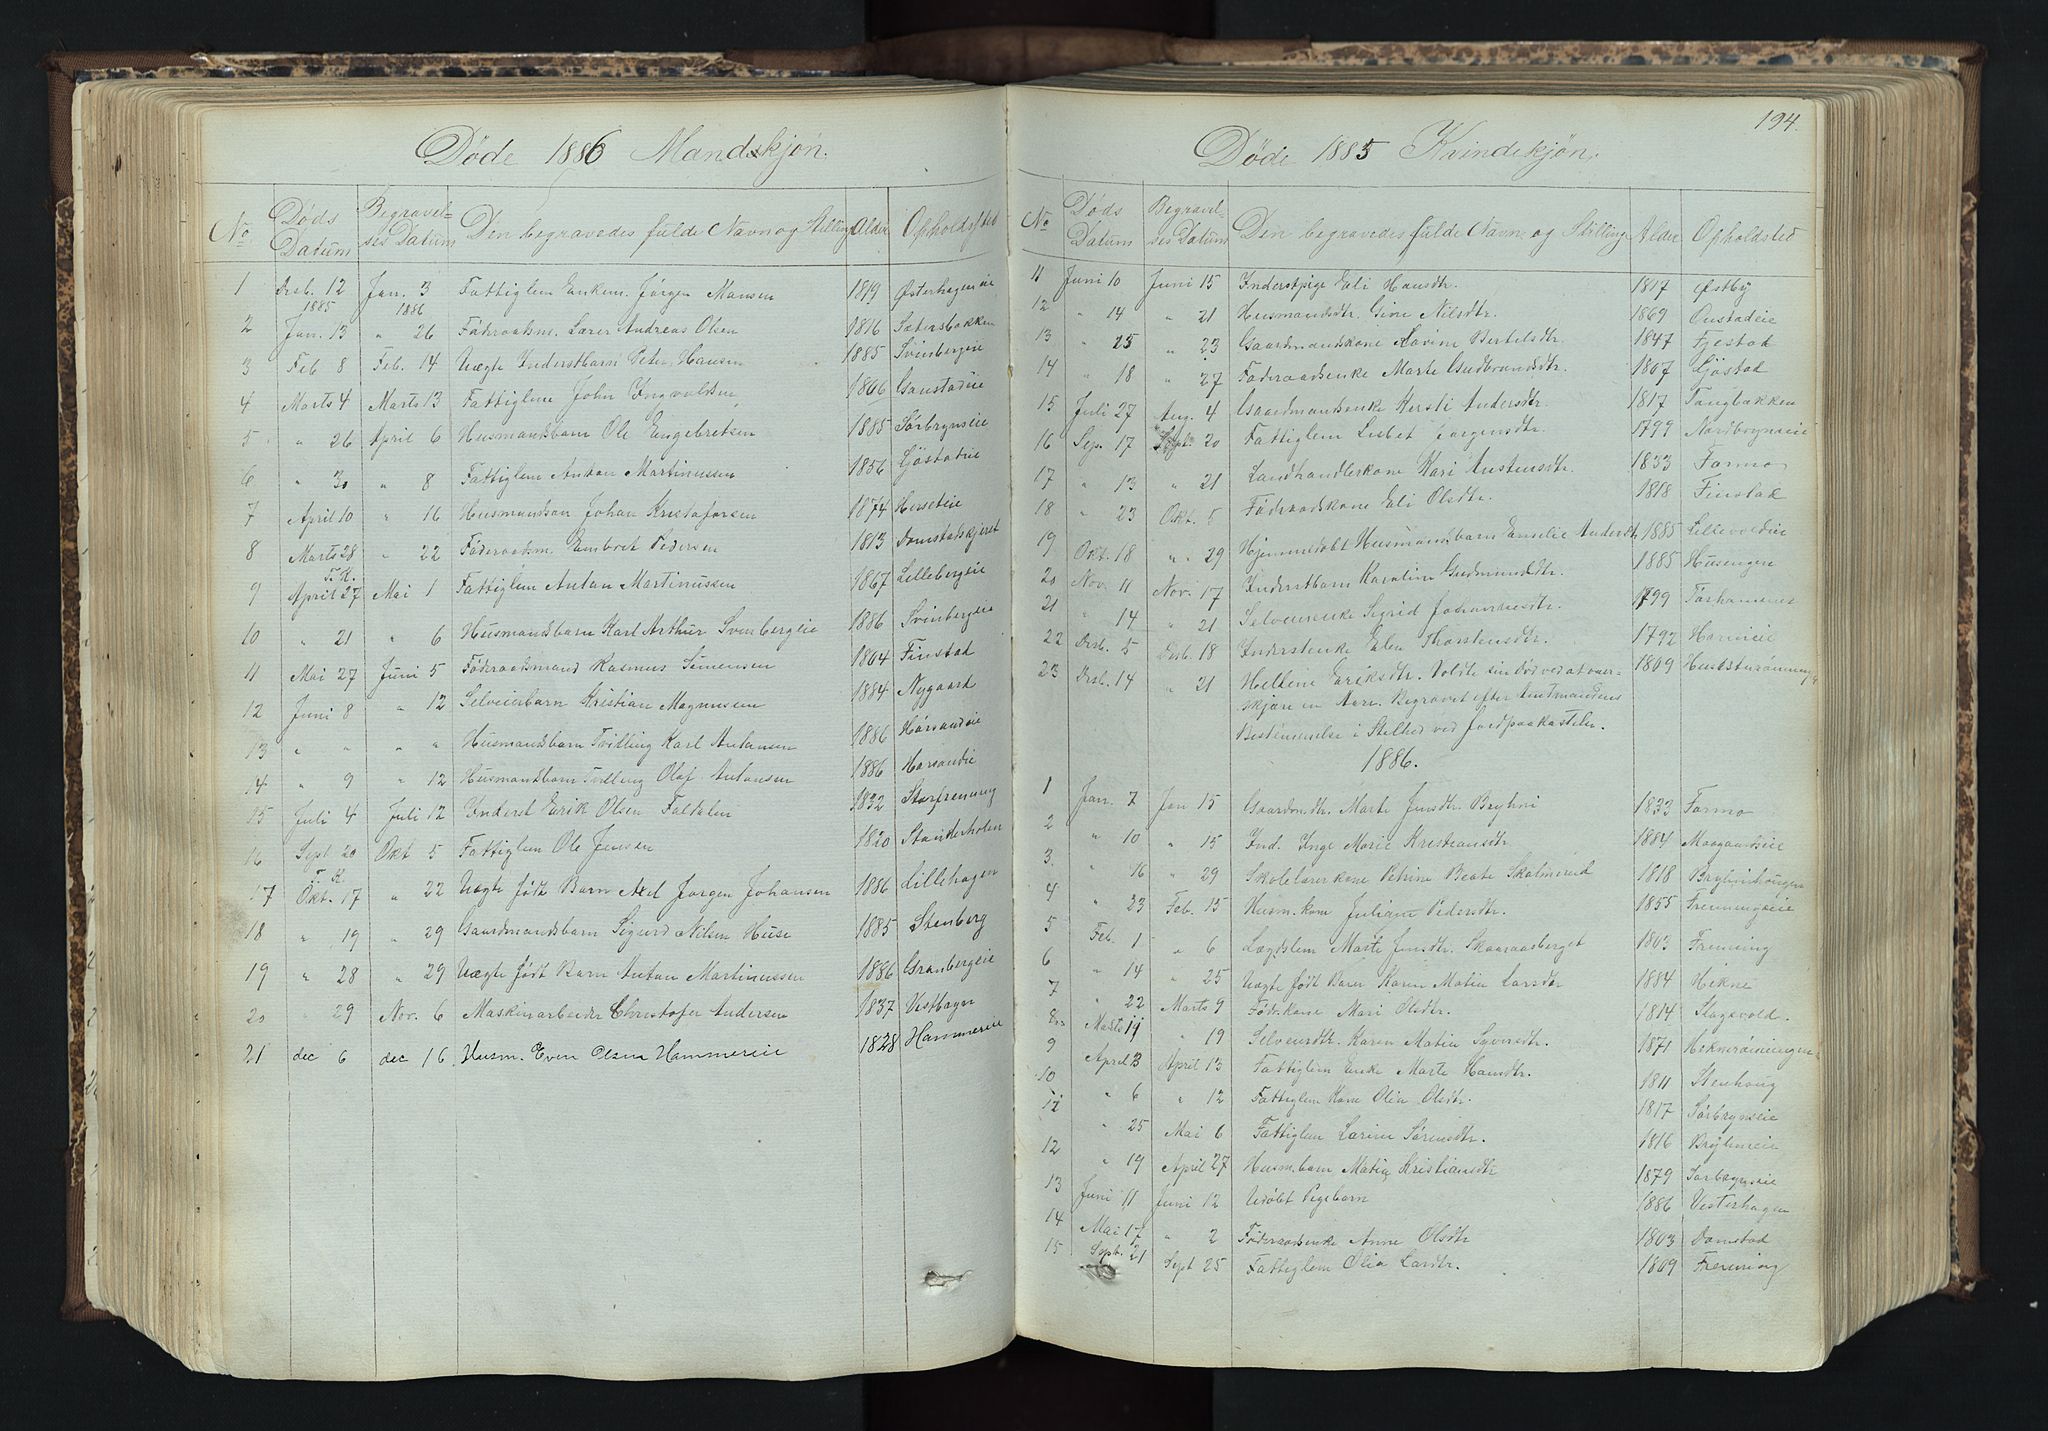 Døde 1886 Mandskjøn.
No. Døds Datum Begravelses Datum Den begravedes fulde Navn og Stilling Alder Opholdssted
1 Desb. 12 1885 Jan. 3 1886 Fattiglem Enkem. Jørgen Hansen 1819 Østerhageneie
2 Jan. 13 " 26 Föderaadsm. Lærer Andreas Olsen 1816 Sætersbakken
3 Feb 8 Feb. 14 Uægte Inderstbarn Peter Hansen 1885 Svinbergeie
4 Marts 4 Marts 13 Fattiglem John Ingvoldsen 1806 Gaustadeie
5 " 26 April 6 Husmandsbarn Ole Engebretsen 1885 Sørbrynseie
6 " 30 " 8 Fattiglem Anton Martinussen 1856 Gjøstadeie
7 April 10 " 16 Husmandssøn Johan Kristofersen 1874 Huseeie
8 Marts 28 " 22 Föderaadsm. Embret Pedersen 1813 Domstadskjeret
9 T. K. April 27 Mai 1 Fattiglem Antan Martinussen 1867 Lillebergeie
10 " 21 " 6 Husmandsbarn Karl Arthur Svenbergeie 1886 Svinbergeie
11 Mai 27 Juni 5 Föderaadsmand Rasmus Simensen 1804 Finstad
12 Juni 8 " 12 Selveierbarn Kristian Magnussen 1884 Nygaard
13 " " " " Husmandsbarn Tvilling Karl Antonsen 1886 Horsandeie
14 " 9 " 12 Husmandsbarn Tvilling Olaf Antonsen 1886 Horsandeie
15 Juli 4 Juli 12 Inderst Erik Olsen Faldalen 1832 Storfrening
16 Sept 20 Okt 5 Fattiglem Ole Jensen 1820 Standerholen
17 T. K. Okt. 17 " 22 Uægte født Barn Axel Jørgen Johansen 1886 Lillehagen
18 " 19 " 29 Gaardmandsbarn Sigurd Nilsen Huse 1885 Stenberg
19 " 28 " 29 Uægte født Barn Antan Martinussen 1886 Granbergeie
20 " 29 Nov. 6 Maskinarbeider Christofer Andersen 1837 Vesthagen
21 dec 6 dec 16. Husm. Even Olsen Hammereie 1828 Hammereie
194.
Døde 1885 Kvindekjøn.
No Døds Datum Begravelses Datum Den begravedes fulde Navn og Stilling Alder Opholdsted
11 Juni 10 Juni 15 Inderstpige Eli Hansdtr. 1817 Østby
12 " 14 " 21 Husmandsdtr. Gine Nilsdtr. 1869 Onstadeie
13 " 25 " 23 Gaardmandskone Lavine Bertelsdtr. 1847 Fjestad
14 " 18 " 27 Föderaadsenke Marte Gudbrandsdtr. 1807 Gjöstad
15 Juli 27 Aug. 4 Gaardmandsenke Kersti Andersdtr. 1817 Tangbakken
16 Sep. 17 Sept. 20 Fattiglem Lisbet Jørgensdtr. 1799 Nordbrynseie
17 " 13 " 21 Landhandlerkone Kari Austensdtr. 1833 Farmo
18 " 23 Okt. 5 Föderaadskone Eli Olsdtr. 1818 Finstad
19 Okt. 18 " 29 Hjemmedøbt Husmandsbarn Emelie Andersdt. 1885 Lillevoldeie
20 Nov. 11 Nov. 17 Inderstbarn Karoline Gudmundsdtr. 1885 Husengen
21 " 14 " 21 Selveierenke Sigrid Johannesdtr. 1799
22 Desb. 5 Desb. 18 Inderstenke Elen Thorstensdtr. 1792 Horneie
23 Desb. 14 " 21 Hellene Eriksdtr. Voldte sin død ved at over- 1809
skjære en Aare. Begravet efter Amtmandens
Bestemmelse i Stilhed ved Jordpaakastelse.
1886.
1 Jan. 7 Jan 15 Gaardmdtr. Marte Jensdtr. Bryhni 1833 Farmo
2 " 10 " 15 Ind. Inge Marie Kristiansdtr 1884 Moagaardseie
3. " 16 " 29 Skolelærerkone Petrine Beate Skalmerud 1818 Bryhnihougen
4 " 23 Feb. 15 Husm.kone Juliane Pedersdtr. 1855 Freningseie
5 Feb. 1 " 6 Lægdslem Marte Jensdtr. Skaaraasberget 1803 Frening
6 " 14 " 25 Uægte født Barn Karen Matia Larsdtr 1884 Hekne
7 " 22 Marts 9 Föd.kone Mari Olsdtr. 1814 Slagsvold.
8 Marts 11 " 19 Selveierdtr. Karen Matia Syversdtr. 1871 Heknerønningen
9 April 3 April 13 Fattiglem Enke Marte Hansdtr. 1811 Stenhoug
10 " 6 " 12 Fattiglem Kone Olia Olsdtr. 1817 Sørbrynseie
11 " 25 Mai 6 Fattiglem Karine Sørensdtr. 1816 Bryhnieie
12 " 19 April 27 Husm.barn Matia Kristiansdtr 1879 Sørbrynseie
13 Juni 11 Juni 12 Udöbt Pigebarn 1886 Vesterhagen
14 Mai 17 " 2 Föderaadsenke Anne Olsdtr 1803 Domstad
15 Sept. 21 Sept 25 Fattiglem Olia Larsdtr. 1809 Frening